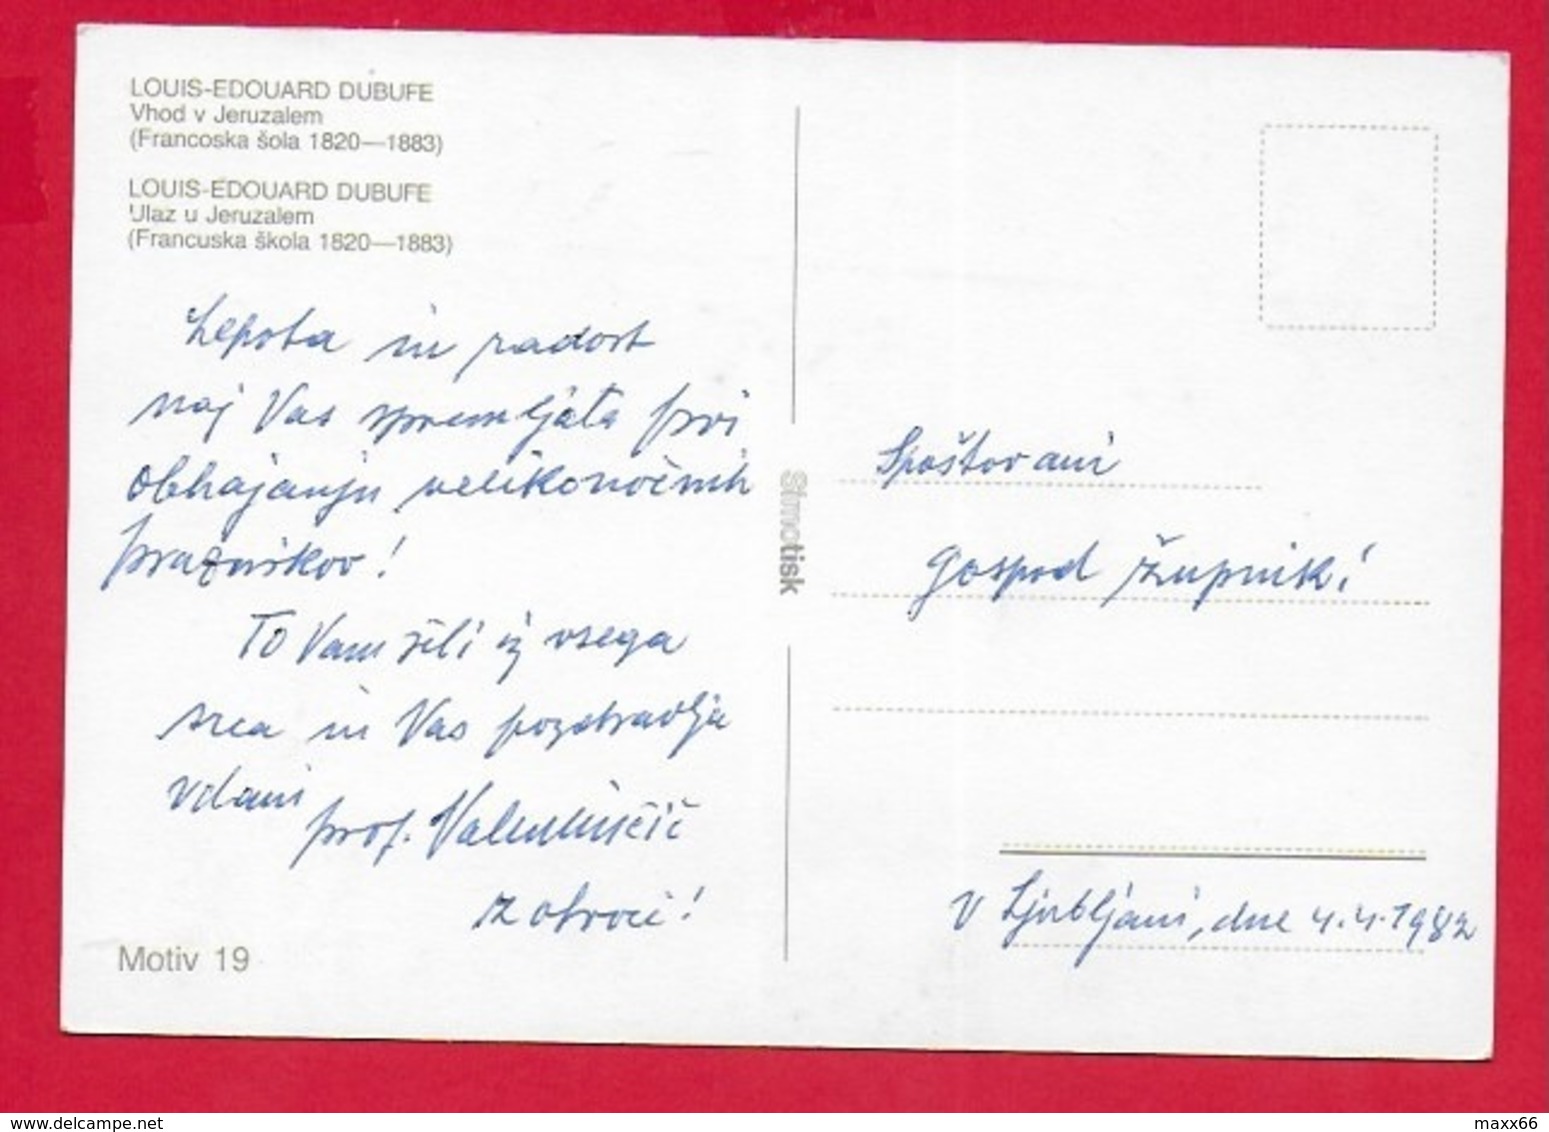 LOUIS-EDOUARD DUBUFE
Vhod v Jeruzalem
(Francoska šola 1820—1883)
LOUIS-EDOUARD DUBUFE
Ulaz u Jeruzalem
(Francuska škola 1820—1883)
Lepota in radost
naj Vas spremljata pri
obhajanju velikonočnih
praznikov!
To Vam želi iz vsega
srca in Vas pozdravlja
vdani
prof.
z otroci!
Motiv 19
tisk
Spoštovani
gospod župnik!
V Ljubljani, dne 4.4.1982
www.delcampe.net
maxx66